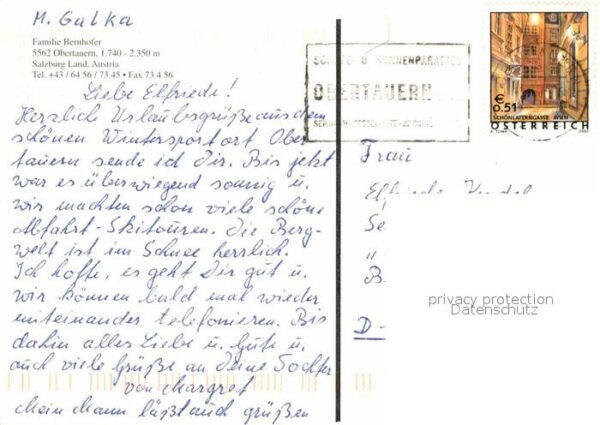 M. Galka
Familie Bernhofer
5562 Obertauern, 1.740 - 2.350 m
Salzburg Land, Austria
Tel. +43 / 64 56 / 73 45 • Fax 73 4 56
Liebe Elfriede!
Herzliche Urlaubsgrüße aus dem
schönen Wintersportort Ober-
tauern sende ich Dir. Bis jetzt
war es überwiegend sonnig u.
wir machten schon viele schöne
Abfahrt-Skitouren. Die Berg-
welt ist im Schnee herrlich.
Ich hoffe, es geht Dir gut u.
wir können bald mal wieder
miteinander telefonieren. Bis
dahin alles Liebe u. Gute u.
auch viele Grüße an Deine Tochter
von Margret
Mein Mann läßt auch grüßen
SONNENPARADIES
OBERTAUERN
€
0.51
SCHÖNLATERNGASSE WIEN
ÖSTERREICH
Frau
Se
B
D-
privacy protection
Datenschutz